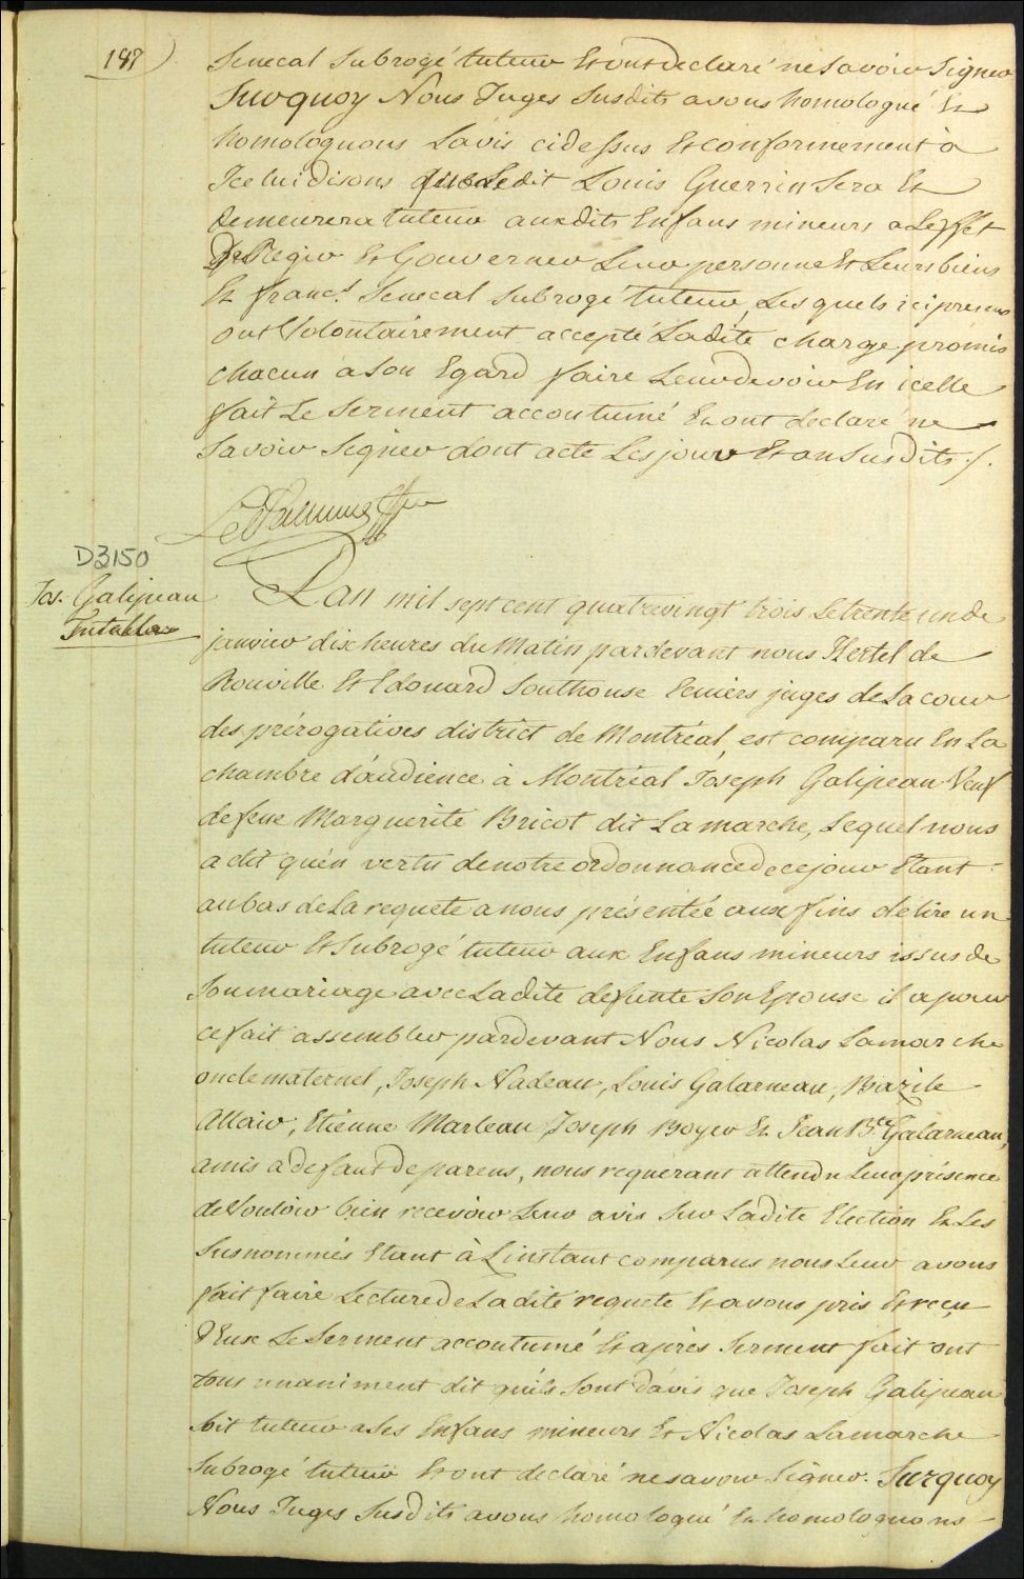 187)
Senecal Subrogé tuteur Et ont declaré ne Savoir Signer
Surquoy Nous Juges Susdits avons homologué Et
homologuons Lavis cidessus Et conformement à
Iceluidisons que Ledit Louis Guerrin Sera Et
demeurera tuteur auxdits Enfans mineurs a Leffet
De Regir Et Gouverner Leur personne Et Leurs biens
Et franc.s Senecal Subrogé tuteur, Les quels ici presens
ont Volontairement accepté Ladite charge promis
chacun a Son Egard faire Leur devoir En icelle
fait Le Serment accoutumé Et ont declaré ne
Savoir Signer dont acte Les jour Et an Susdits ./.
D3150
Jos. Galipeau
Tutelle
Lan mil sept cent quatrevingt trois Le trente un de
janvier dix heures du Matin pardevant nous Hertel de
Rouville Et Edouard Southouse Ecuiers juges de La cour
des prérogatives district de Montréal, est comparu En La
chambre d'audience à Montréal Joseph Galipeau Veuf
de feue Marguerite Bricot dit Lamarche, Lequel nous
a dit qu'en vertu de notre ordonnance de ce jour Etant
au bas de La requete a nous présentée aux fins délire un
tuteur Et Subrogé tuteur aux Enfans mineurs issus de
Son mariage avec Ladite defunte Son Epouse il a pour
ce fait assembler pardevant Nous Nicolas Lamarche
oncle maternel, Joseph Nadeau, Louis Galarneau, Bazile
Allair, Etienne Marleau Joseph Boyer Et Jean Bte Galarneau,
amis a defaut de parens, nous requerant attendu Leur présence
de Vouloir bien recevoir Leur avis Sur Ladite Election Et Les
Susnommés Etant à L'instant comparus nous Leur avons
fait faire Lecture de Ladite requete Et avons pris Et reçu
d'Eux Le Serment accoutumé Et après Serment fait ont
tous unaniment dit quils Sont d'avis que Joseph Galipeau
Soit tuteur a Ses Enfans mineurs Et Nicolas Lamarche
Subrogé tuteur Et ont declaré ne savoir Signer. Surquoy
Nous Juges Susdits avons homologué Et homologuons